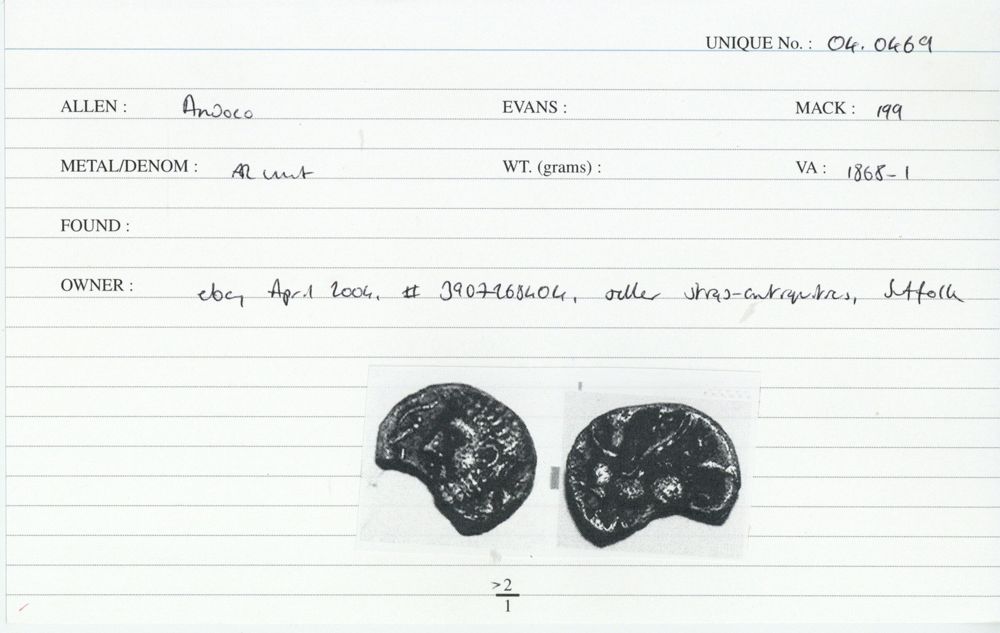 UNIQUE No. : 04.0469
ALLEN : Andoco EVANS : MACK : 199
METAL/DENOM : AR unit WT. (grams) : VA : 1868-1
FOUND :
OWNER : ebay April 2004, # 3907268404, seller Suffolk
>2
1